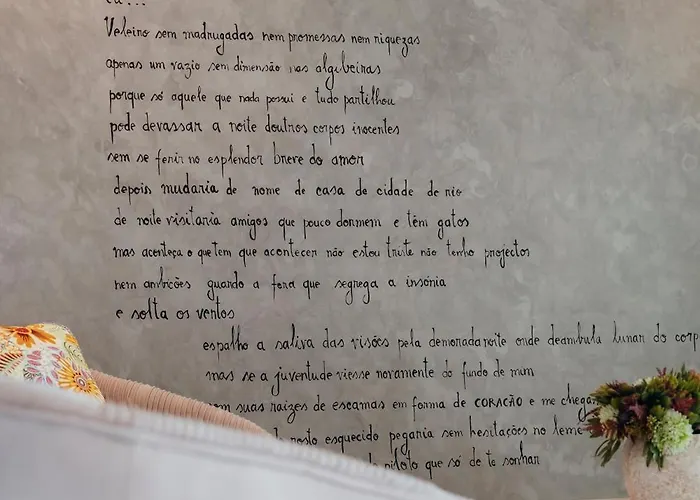 Veleiro sem madrugadas nem promessas nem riquezas
apenas um vazio sem dimensão nas algibeiras
porque só aquele que nada possui e tudo partilhou
pode devassar a noite doutros corpos inocentes
sem se ferir no esplendor breve do amor
depois mudaria de nome de casa de cidade de rio
de noite visitaria amigos que pouco dormem e têm gatos
mas aconteça o que tem que acontecer não estou triste não tenho projectos
nem ambições guardo a fera que segrega a insónia
e solta os ventos
espalho a saliva das visões pela demorada noite onde deambula lunar do corp
mas se a juventude viesse novamente do fundo de mim
suas raízes de escamas em forma de CORAÇÃO e me chega
rosto esquecido pegaria sem hesitações no leme
piloto que só de te sonhar